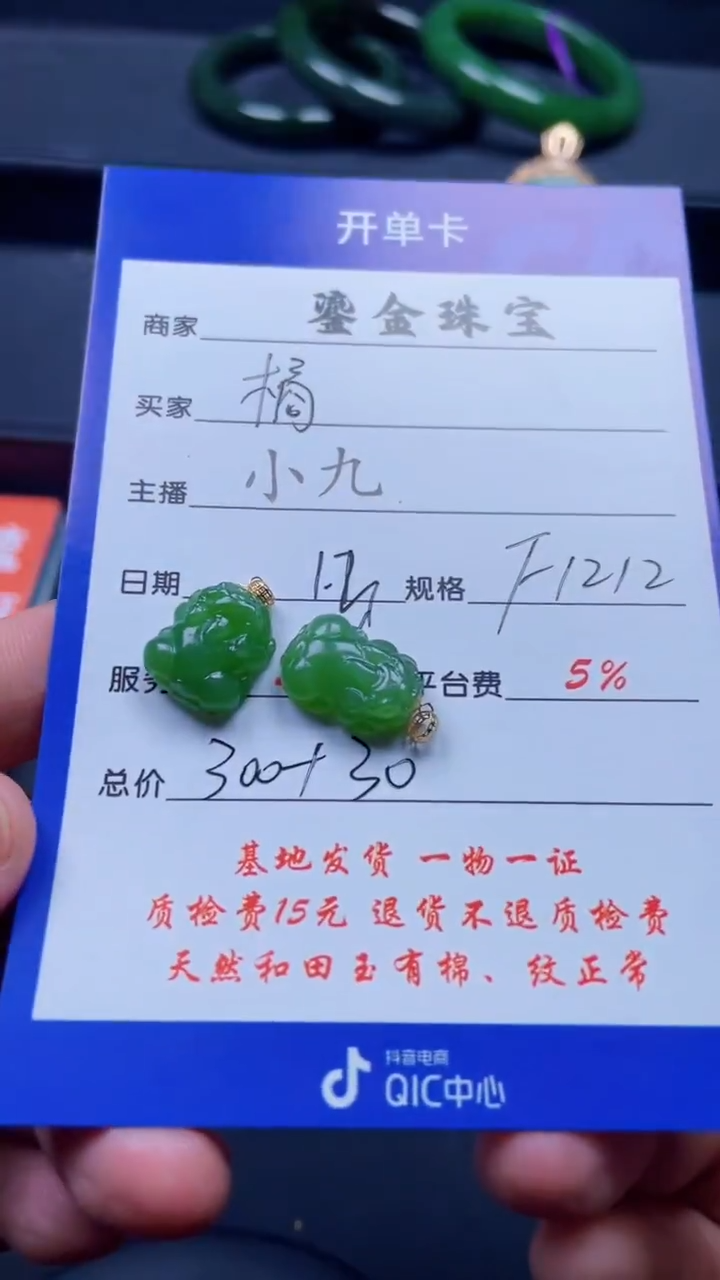 开单卡
商家 鎏金珠宝
买家 橘
主播 小九
日期 规格 F1212
服务 平台费 5%
总价 300+30
基地发货 一物一证
质检费15元 退货不退质检费
天然和田玉有棉、纹正常
抖音电商
QIC中心